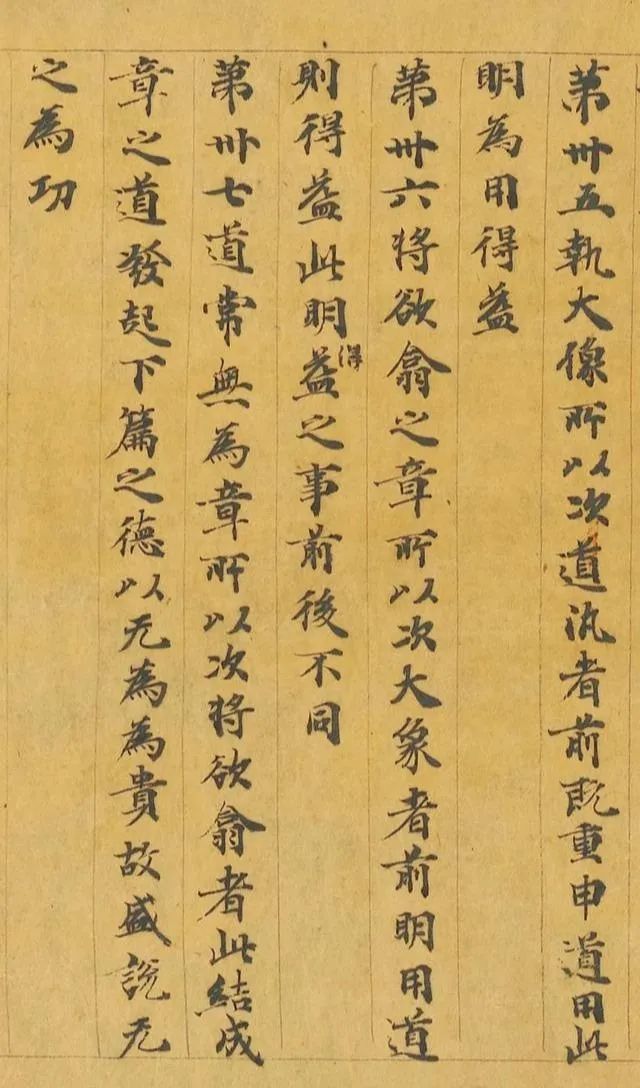 苐卅五執大像所以次道汎者前既重申道用此
明為用得益
苐卅六将欲翕之章所以次大象者前明用道
則得益此明得益之事前後不同
苐卅七道常無為章所以次将欲翕者此結成
章之道發起下篇之德以无為為貴故盛說无
之為功